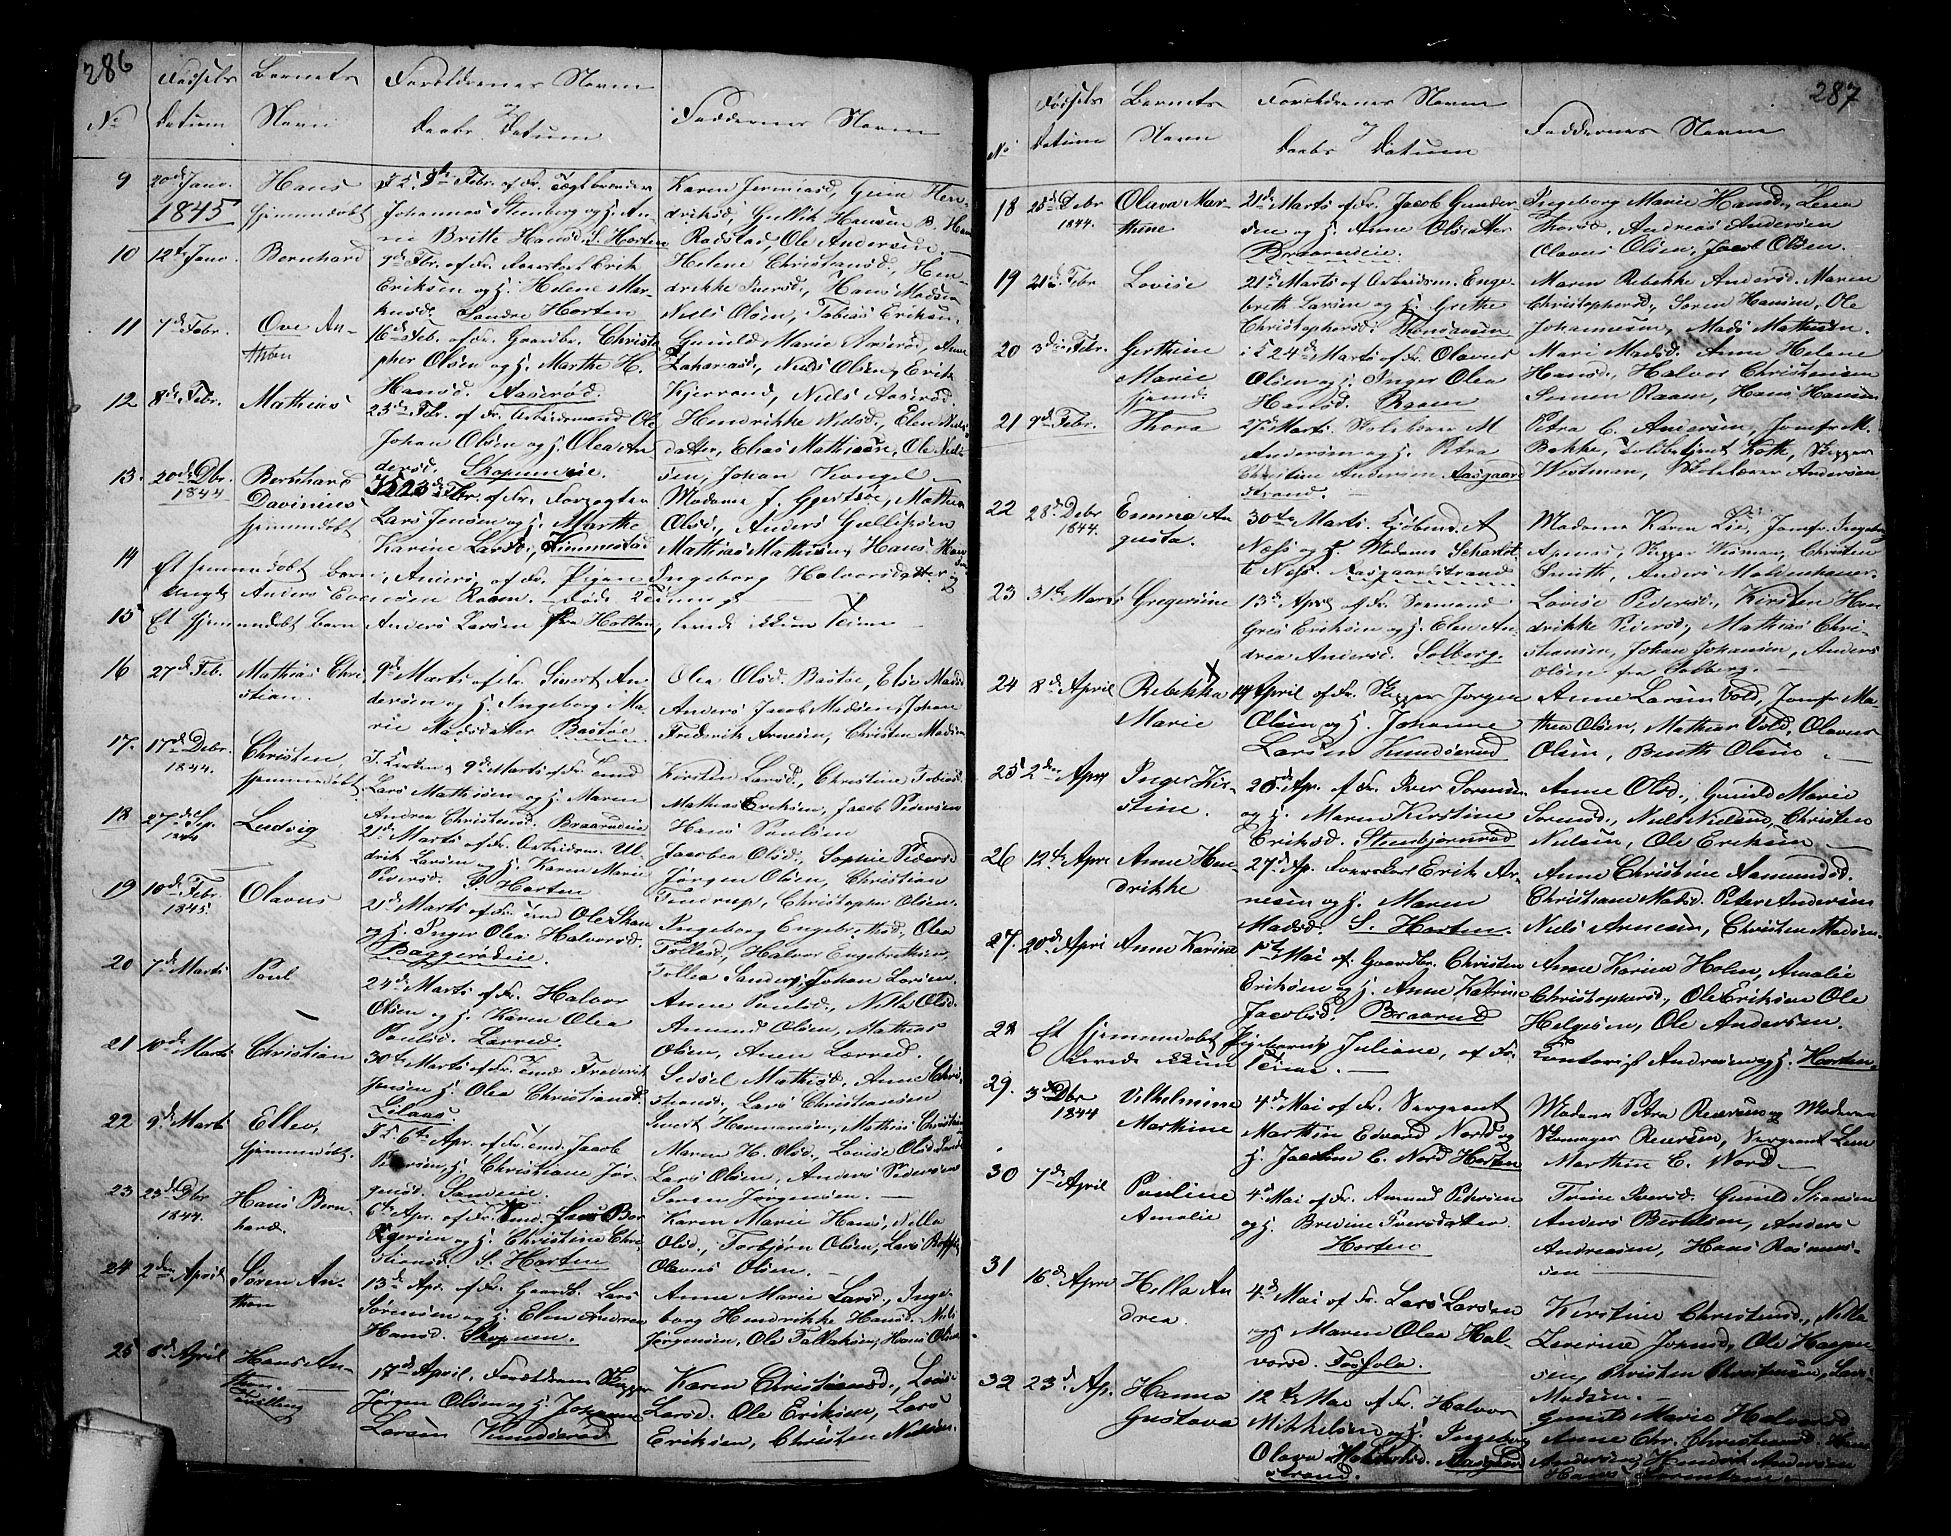 286
No
Fødsels
Datum
Barnets
Navn
Forældrenes Navn
og
Daabs Datum
Faddernes Navn
9
20de Janv.
1845
Hans
hjemmedøbt
Febr. af Fr.
Johannes Stenberg og h. An-
ne Britte Hansd. S. Horten
Karen Jermiasd, Gunn Hen-
driksd, Gullik Hansen
Radstad, Ole Andersen
10
12te Janv.
Bernhard
9de Febr. af Fr. Erik
Eriksen og h. Helene Mar-
kusd. Søndre Horten
Helene Christiansd, Hen-
drikke Iversd., Hans Madsen
Niels Olsen, Tobias Eriksen.
11
7de Febr.
Ove An-
thon
16de Feb. af Fr. Gaardbr. Christo-
pher Olsen og h. Marthe H.
Hansd. Aaserød.
Gunild Marie Aaserød, Anne
Zahariasd., Niels Olsen, Erik
Kjerrand, Niels Aaserød.
12
8de Febr.
Mathias
23de Febr. af Fr. Arbeidsmand Ole
Johan Olsen og h. Olea An-
dersd. Skopumeie.
Hendrikke Nielsd, Elen Niels-
datter, Elias Mathissen, Ole Niel-
sen, Johan Kongel
13.
20de Dbr.
1844
Bernhard
Davinius
hjemmedøbt
23de Febr. af Fr. Forpagter
Lars Jensen og h. Marthe
Karine Larsd., Kimmestad
Madame J. Gjertsen, Mathea
Olsd, Anders Gulliksen
Mathias Mathisen, Hans Han-
14
Et hjemmedøbt barn, Anders, af Fr. Pigen Ingeborg Halvorsdatter og
Ungk. Anders Evensen Raaen. Døde
15
Et hjemmedøbt barn Anders Larsen fra Holtan, levede ikkun Time
16
27de Feb.
Mathias Chri-
stian.
9de Marts af Fr. Sivert An-
dersen og h. Ingeborg Ma-
rie Madsdatter Bastøe
Olea Olsd. Bastøe, Else Madsd
Anders Jacob Madsen, Johan
Frederik Arnesen, Christen Madsen
17.
17de Debr.
1844.
Christen,
hjemmedøbt.
I Kirken 9de Marts af Fr. Tømd
Lars Mathisen og h. Maren
Andrea Christensd. Braarudeie
Kirsten Larsd., Christine Tobiasd.
Mathias Eriksen, Jacob Pedersen
Hans Paulsen
18
27de Sep.
1844
Ludvig
21de Marts af Fr. Arbeidsm. Ul-
drik Larsen og h. Karen Marie
Pedersd. S. Horten
Jacobea Olsd, Sophie Pedersd
Jørgen Olsen, Christian
Tendrup, Christopher Olsen.
19
10de Febr.
1845.
Olavus
21de Marts af Fr. Ole Skau
og h. Inger Olea Halvorsd.
Baggerødeie.
Ingeborg Engebrethsd, Olea
Tollesd, Halvor Engebrethsen
Tollea Sanders, Johan Larsen.
20
7de Marts
Poul
24de Marts af Fr. Halvor
Olsen og h. Karen Olea
Paulsd. Larred.
Anne Paulsd, Nilla Olsd.
Amund Olsen, Mathias
Olsen, Anen Larred.
21
10de Marts
Christian
30te Marts af Fr. Tømd Frederik
Jensen h. Olea Christiansd.
Liaas
Sidsel Mathisd., Anne Chri-
stiansd, Lars Christiansen
Sivert Hermansen, Mathis Christian
22
9de Marts
Ellev,
hjemmedøbt.
6te Apr. af Fr. Tømd. Jacob
Petersen, h. Christiane Jør-
gensd. Sandeie.
Maren H. Olsd, Lovise Olsd
Lars Olsen, Anders Pedersen
Søren Jørgensen.
23
23de Dbr
1844.
Hans Bern-
hard.
6te Apr. af Fr. Tømd. Lars Bør-
gersen og h. Christine Chri-
stiansd. S. Horten
Karen Marie Hansd, Nella
Olsd, Torbjørn Olsen, Lars
Olavus Olsen.
24
2den April
Søren An-
thon
13de Apr. af Fr. Gaardb. Lars
Sørensen og h. Elen Andrea
Hansd. Skopum.
Anne Marie Larsd., Inge-
borg Hendrikke Hansd. Niels
Jørgensen, Ole Tallaksen, Hans Olsen
25
8de April
Hans An-
thon.
Tvilling
17de April, Forældrene Skipper
Jørgen Olsen og h. Johanne
Larsen Kundserød
Karen Christiansd., Lovise
Larsd. Ole Eriksen, Lars
Eriksen, Christen Nilsen.
287
No
Fødsels
Datum
Barnets
Navn
Forældrenes Navn
og
Daabs Datum
Faddernes Navn
18
25de Debr
1844.
Olava Mar-
thine
21de Marts af Fr. Jacob Gunder-
sen og h. Anne Olsdatter
Braarudeie
Ingeborg Marie Hansd., Lena
Thorsd, Andreas Andersen
Olavus Olsen, Jacob Olsen.
19
21de Febr
Lovise
21de Marts af Arbeidsm. Enge-
breth Larsen og h. Grethe
Christophersd.
Maren Rebekke Andersd. Maren
Christophersd., Søren Hansen, Ole
Johannesen, Mads Mathisen.
20
3die Febr.
Gerthine
Marie
hjemd.
24de Marts af Fr. Olavus
Olsen og h. Inger Olea
Hansd. Raaen
Mari Madsd. Anne Helene
Hansd., Halvor Christensen
Simen Raaen, Hans Hansen
21
9de Febr.
Thora
27de Marts. Skolelærer M
Andersen og h. Petra
Christine Andersen Aasgaard-
strand.
Petra C. Andersen, Jomfr. M.
Bakke, Toldbetjent Koth, Skipper
Wistman, Skolelærer Andersen
22
28de Debr
1844.
Emma Au-
gusta.
30te Marts. Kjøbmd. A
Næss og h. Madame Scharlot-
te Næss. Aasgaardstrand
Madame Karen Lie, Jomfr. Ingeborg
Apenæs, Skipper Wisman, Christen
Smith, Anders Moldenhauer.
23
31te Marts
Gregersine
13de April af Fr. Sømand
Gres Eriksen og h. Elen An-
drea Andersd. Solberg.
Lovise Pedersd., Kirsten Hen
drikke Pedersd., Mathias Chri-
stensen, Johan Johansen, Anders
Olsen fra Solberg.
24
8de April
Rebekka
Marie
17 April af Fr. Skipper Jørgen
Olsen og h. Johanne
Larsen Kundserød
Anne Larsen Vold, Jomfr Ma-
thea Olsen, Mathias Vold, Olavus
Olsen, Benth Olsen
25
2den Apr
Inger Kir-
stine.
20de Apr. af Fr. Iver Sørensen
og h. Maren Kirstine
Eriksd. Stenbjørnrød
Anne Olsd., Gunild Marie
Sørensd, Niels Nielsen, Christen
Nielsen, Ole Eriksen
26
12te Apr
Anne Hen-
drikke
27de Ap. Erik Ar-
nesen og h. Maren
Madsd. S. Horten.
Anne Christine Aamundsd.
Christiane Madsd. Peter Andersen
Niels Arnesen, Christen Madsen.
27.
20de April
Anne Karine
1ste Mai af Gaardbr. Christen
Eriksen og h. Anne Katrine
Jacobsd. Braarud
Anne Karine Holm, Amalie
Christophersd., Ole Eriksen Ole
Helgesen, Ole Andersen.
28
Et hjemmedøbt Pigebarn, Juliane, af Fr. Kontorist Andresen og h. Horten
levede ikkun Time.
29.
3de Dbr
1844
Vilhelmine
Marthine
4de Mai af Fr. Sergeant
Marthin Edvard Nord og
h. Jacobine C. Nord Horten
Madam Petra Reiersen og Madam
Skomager Reiersen, Sergeant Lem
Marthin E. Nord.
30
7de April
Pauline
Amalie
4de Mai af Fr. Amund Petersen
og h. Bredine Iversdatter.
Horten
Trine Iversd. Gunild Stansen
Anders Bertelsen, Anders
Andreasen, Hans Rasmus-
sen
31
16de April
Hella An
drea.
4de Mai af Fr. Lars Larsen
og h. Maren Olea Hal-
vorsd.
Kirstine Christensd., Nilla
Severine Jensd., Ole Haagen-
sen, Christen Christensen, Lars
Madsen.
32
23de Ap.
Hanna
Gustava
12te Mai af Fr. Halvor
Mikkelsen og h. Ingeborg
Olava Aasgaard-
strand.
Gunild Marie Halvorsd
Anne Chr. Christensd. Hans
Andersen, Hendrik Andersen
Hans Sørensen